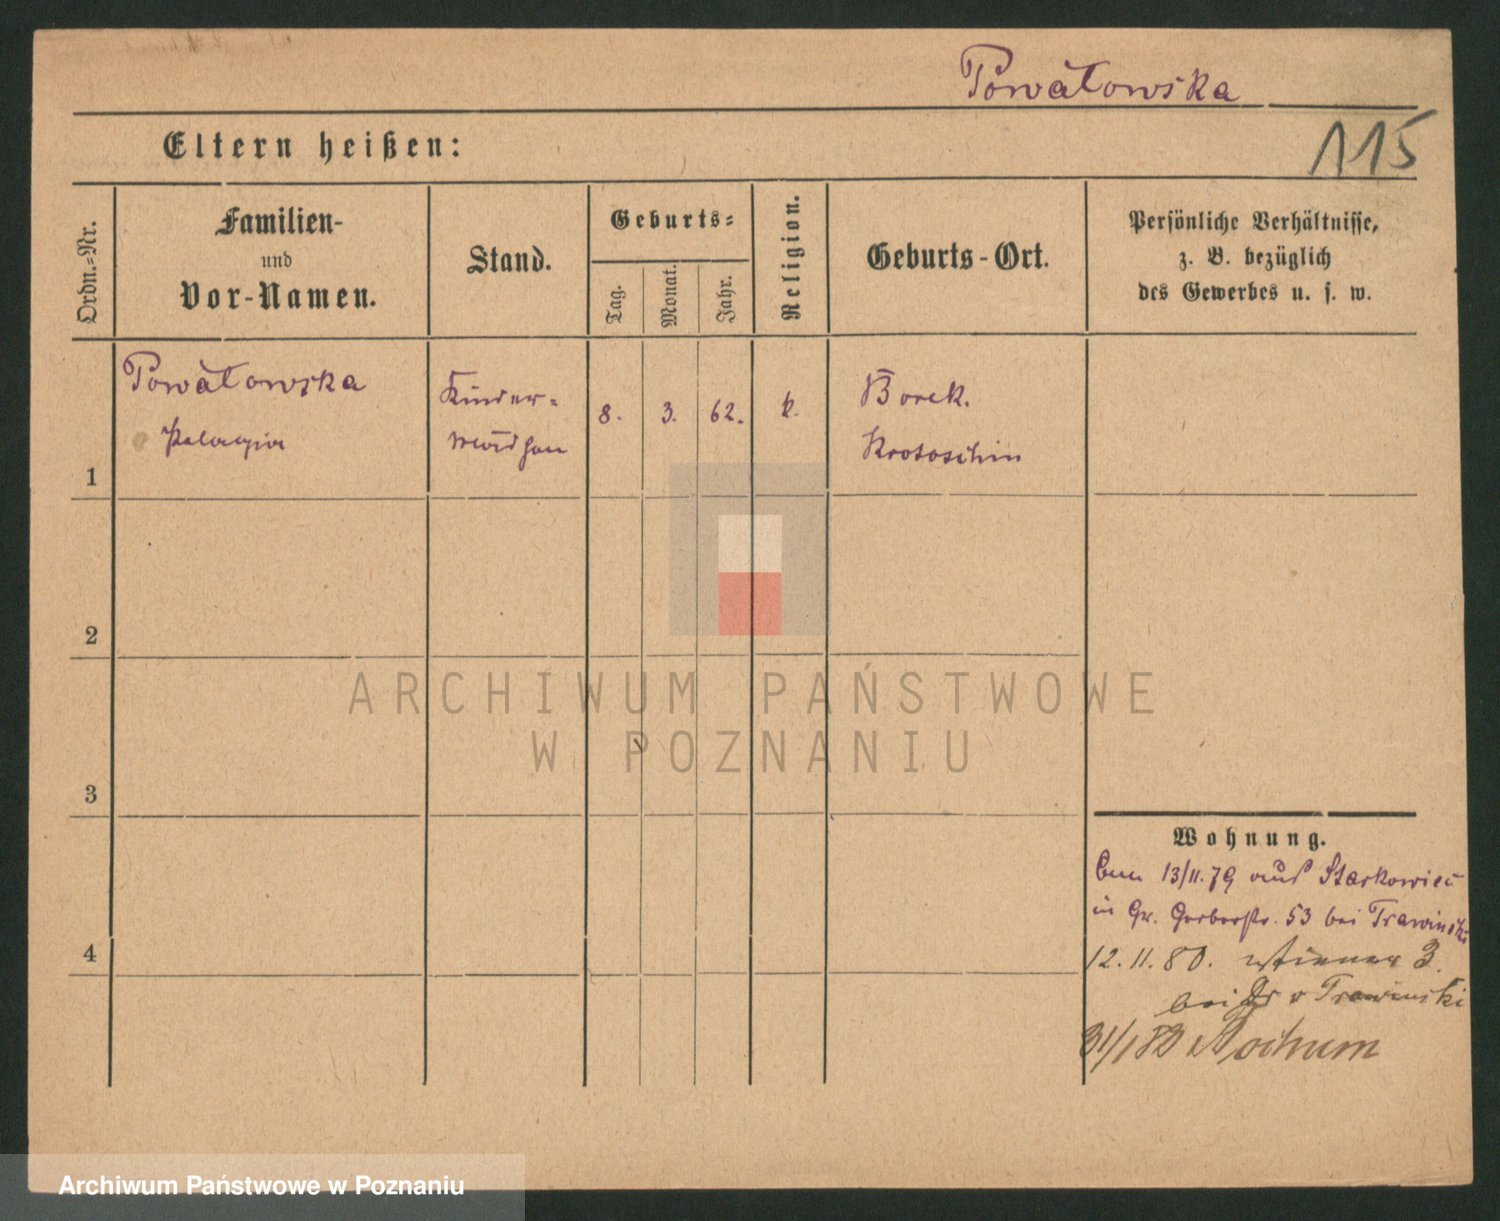 Powałowska
115
Eltern heißen:
Ordn.-Nr.
Familien-
und
Vor-Namen.
Stand.
Geburts-
Tag.
Monat.
Jahr.
Religion.
Geburts-Ort.
Persönliche Verhältnisse,
z. B. bezüglich
des Gewerbes u. s. w.
1
Powałowska
Pelagia
Kinder-
mädchen
8.
3.
62.
k.
Borek.
Krotoschin
2
3
4
Wohnung.
13/11.79 aus Starkowiec
in Gr. Gerberstr. 53 bei Trawinski
12. 11. 80. Wiener 3.
bei Dr v Trawinski
31/1 82 Bochum
ARCHIWUM PAŃSTWOWE
W POZNANIU
Archiwum Państwowe w Poznaniu